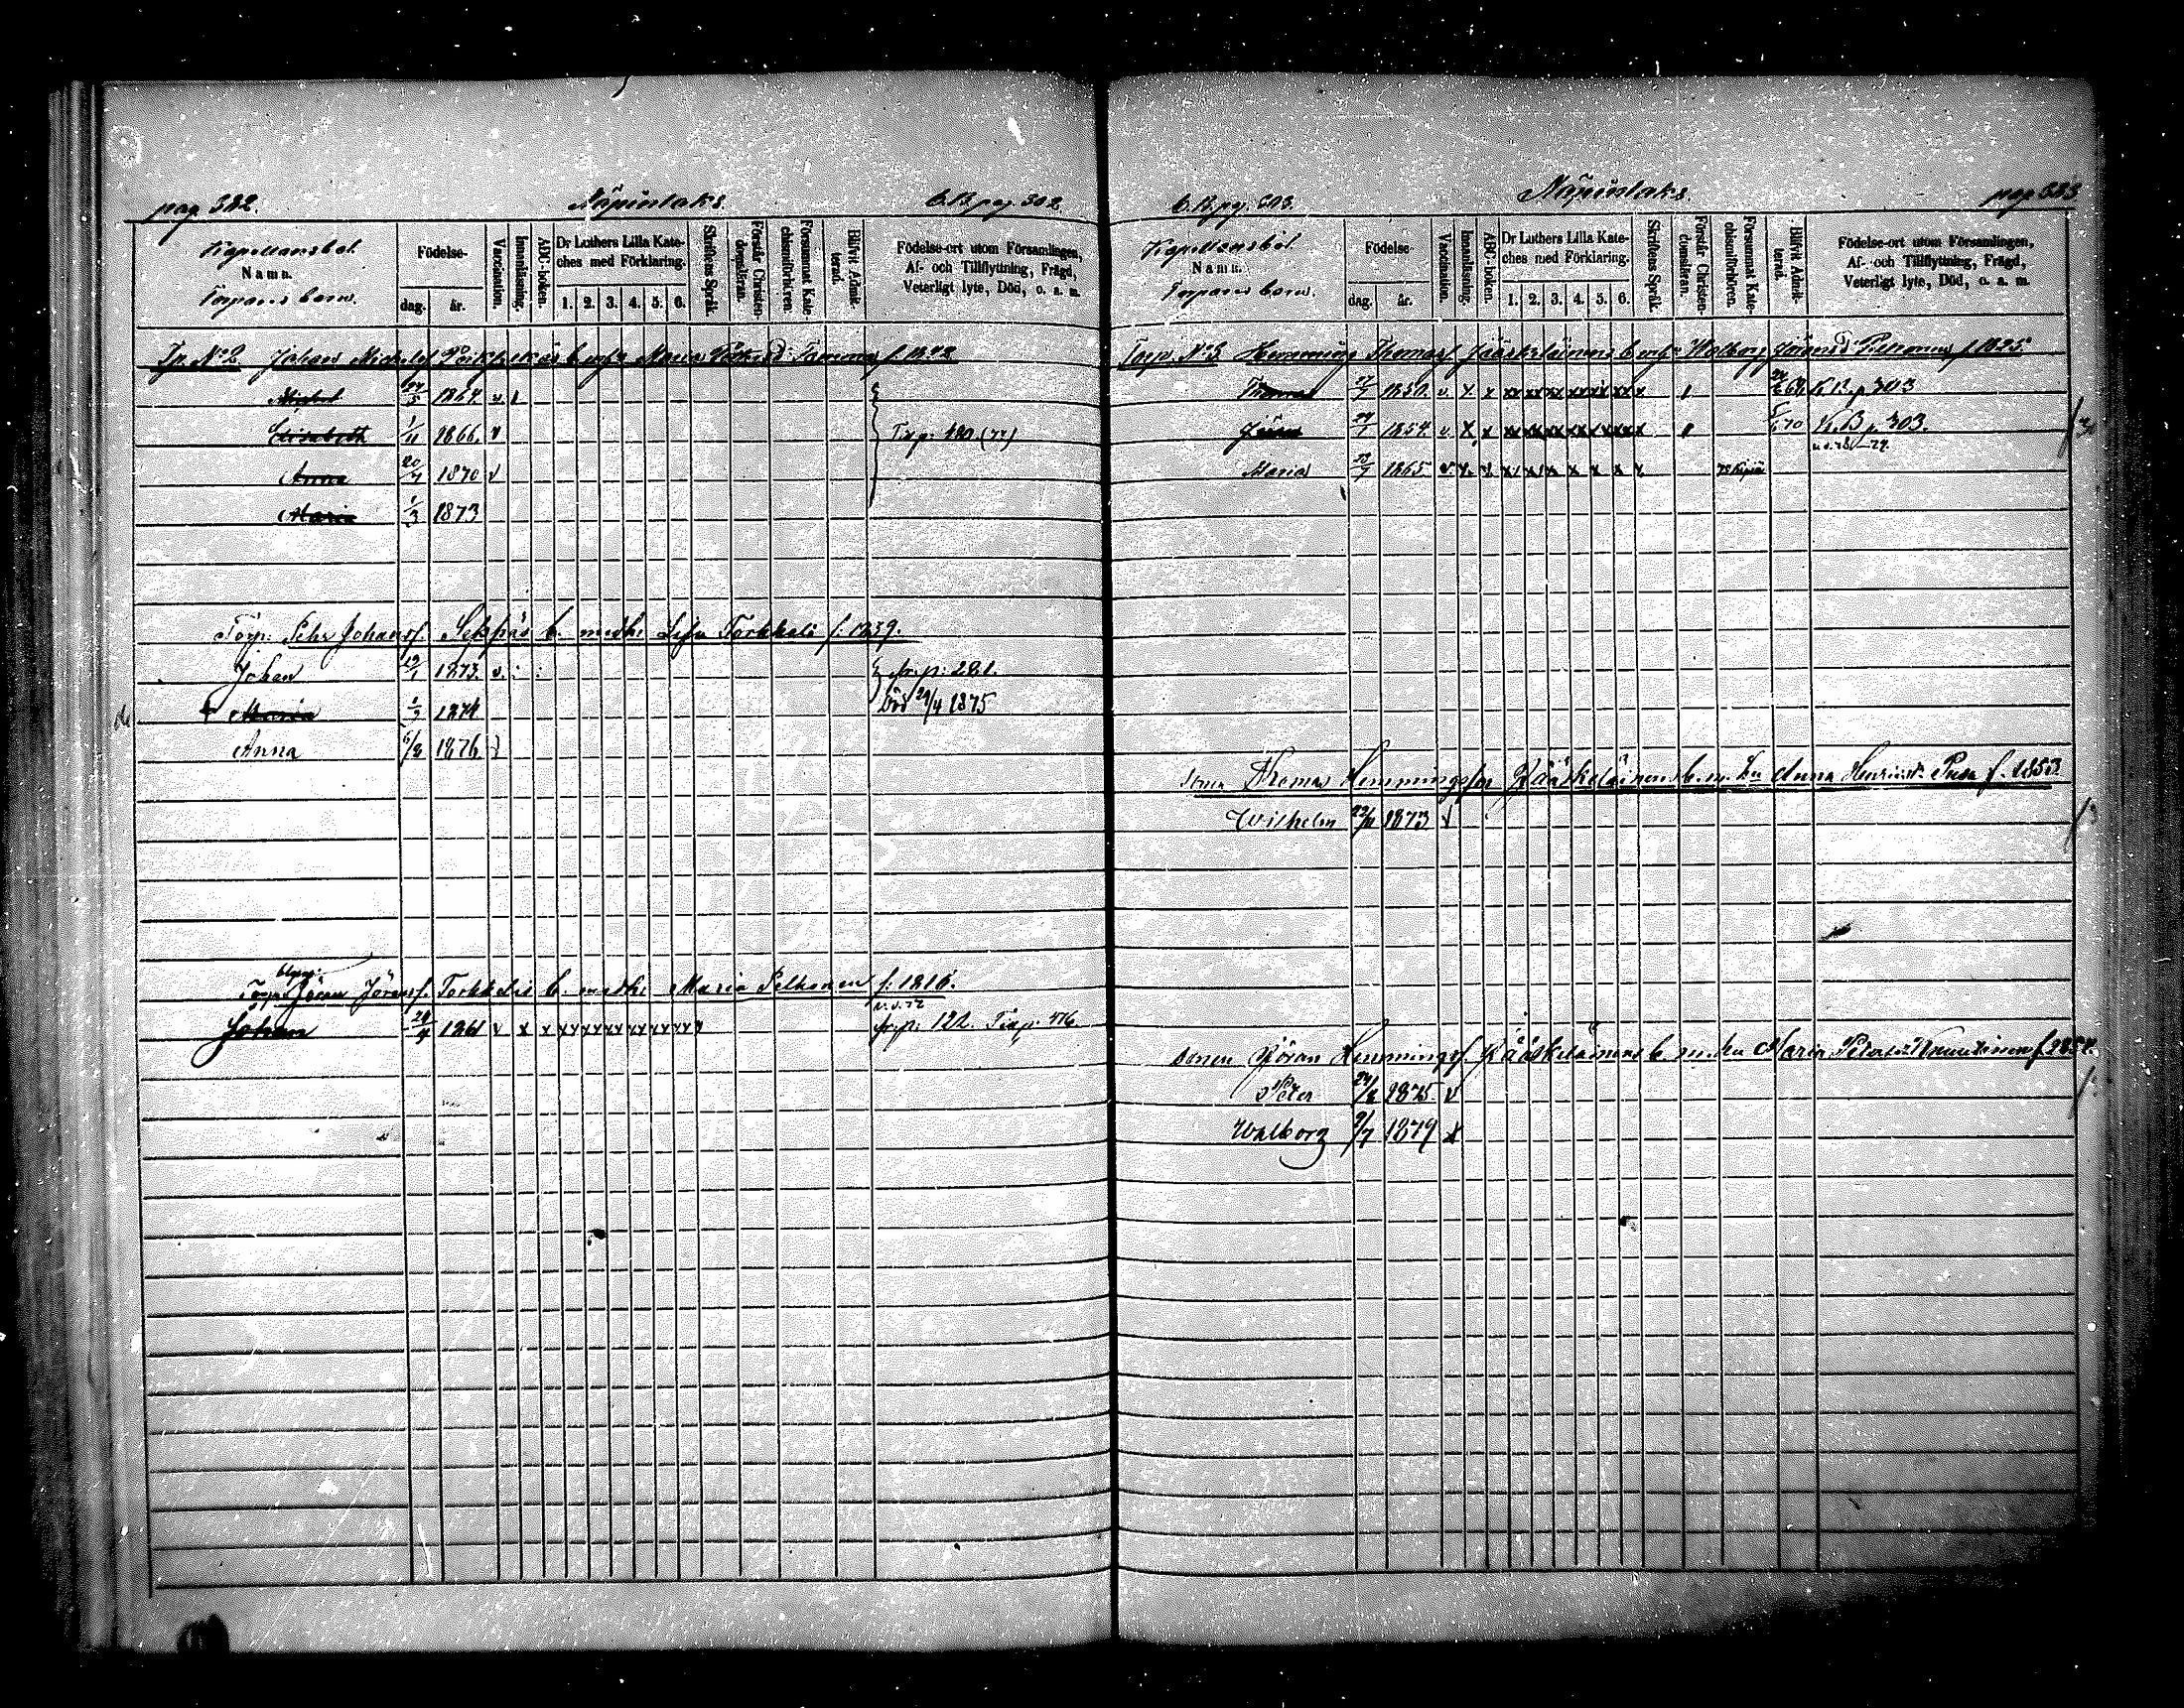 pag 322.
Näpinlaks.
C.B. pag. 302.
Kapellansbol.
Namn.
Torpares barn.
Födelse-
dag.
år.
Vaccination.
Innanläsning.
ABC-boken.
Dr Luthers Lilla Kate-
ches med Förklaring.
1. 2. 3. 4. 5. 6.
Skriftens Språk.
Förstår Christen-
domsläran.
Försummat Kate-
chismiförhören.
Blifvit Admit-
terad.
Födelse-ort utom Församlingen,
Af- och Tillflyttning, Frägd,
Veterligt lyte, Död, o. a. m.
Tp. No 2 Johan Michelsf. b. m. h. Maria f. 1842
Michel 1864 v
Elisabeth 1/11 1866 v Tr. p: 480 (77)
Anna 20/4 1870 v
Maria 1/3 1873
Torp: Pehr Johansf. Seppäs b. med h: Lisa Torkkeli f: 1839.
Johan 19/1 1873. v. fr. p: 281.
Maria 1874 Död 29/4 1875
Anna 6/8 1876
Torp: Jöran Jöransf. Torkkelis b. med h: Maria Pelkonen f: 1816.
Johan 1861 v x x xx xx xx xx xx xx fr. p: 122. Tr. p: 476.
C.B. pg. 303.
Näpinlaks.
pag 323
Kapellansbol.
Namn.
Torpares barn.
Födelse-
dag.
år.
Vaccination.
Innanläsning.
ABC-boken.
Dr Luthers Lilla Kate-
ches med Förklaring.
1. 2. 3. 4. 5. 6.
Skriftens Språk.
Förstår Christen-
domsläran.
Försummat Kate-
chismiförhören.
Blifvit Admit-
terad.
Födelse-ort utom Församlingen,
Af- och Tillflyttning, Frägd,
Veterligt lyte, Död, o. a. m.
Torp. No 3 Hemming Thomasf. Jääskeläinens b. m. h. Walborg Jöransd: Pelkonen f 1825
Thomas 27/7 1850. v. x x xx xx xx xx xx xx x K.B. p 303
Jöran 1854 v. x x xx xx xx xx xx xx x 70 K.B. p 303.
Maria 1865 v x.
sonen Thomas Hemmingsson Jääskeläinens b. m. hu Anna Henriksd: Pusa f. 1853
Wilhelm 1873 v
sonen Jöran Hemmingsf. Jääskeläinens b. m. hu Maria Petersd: Knuutinen f 1854.
Peter 24/8 1875 v
Walborg 9/7 1879